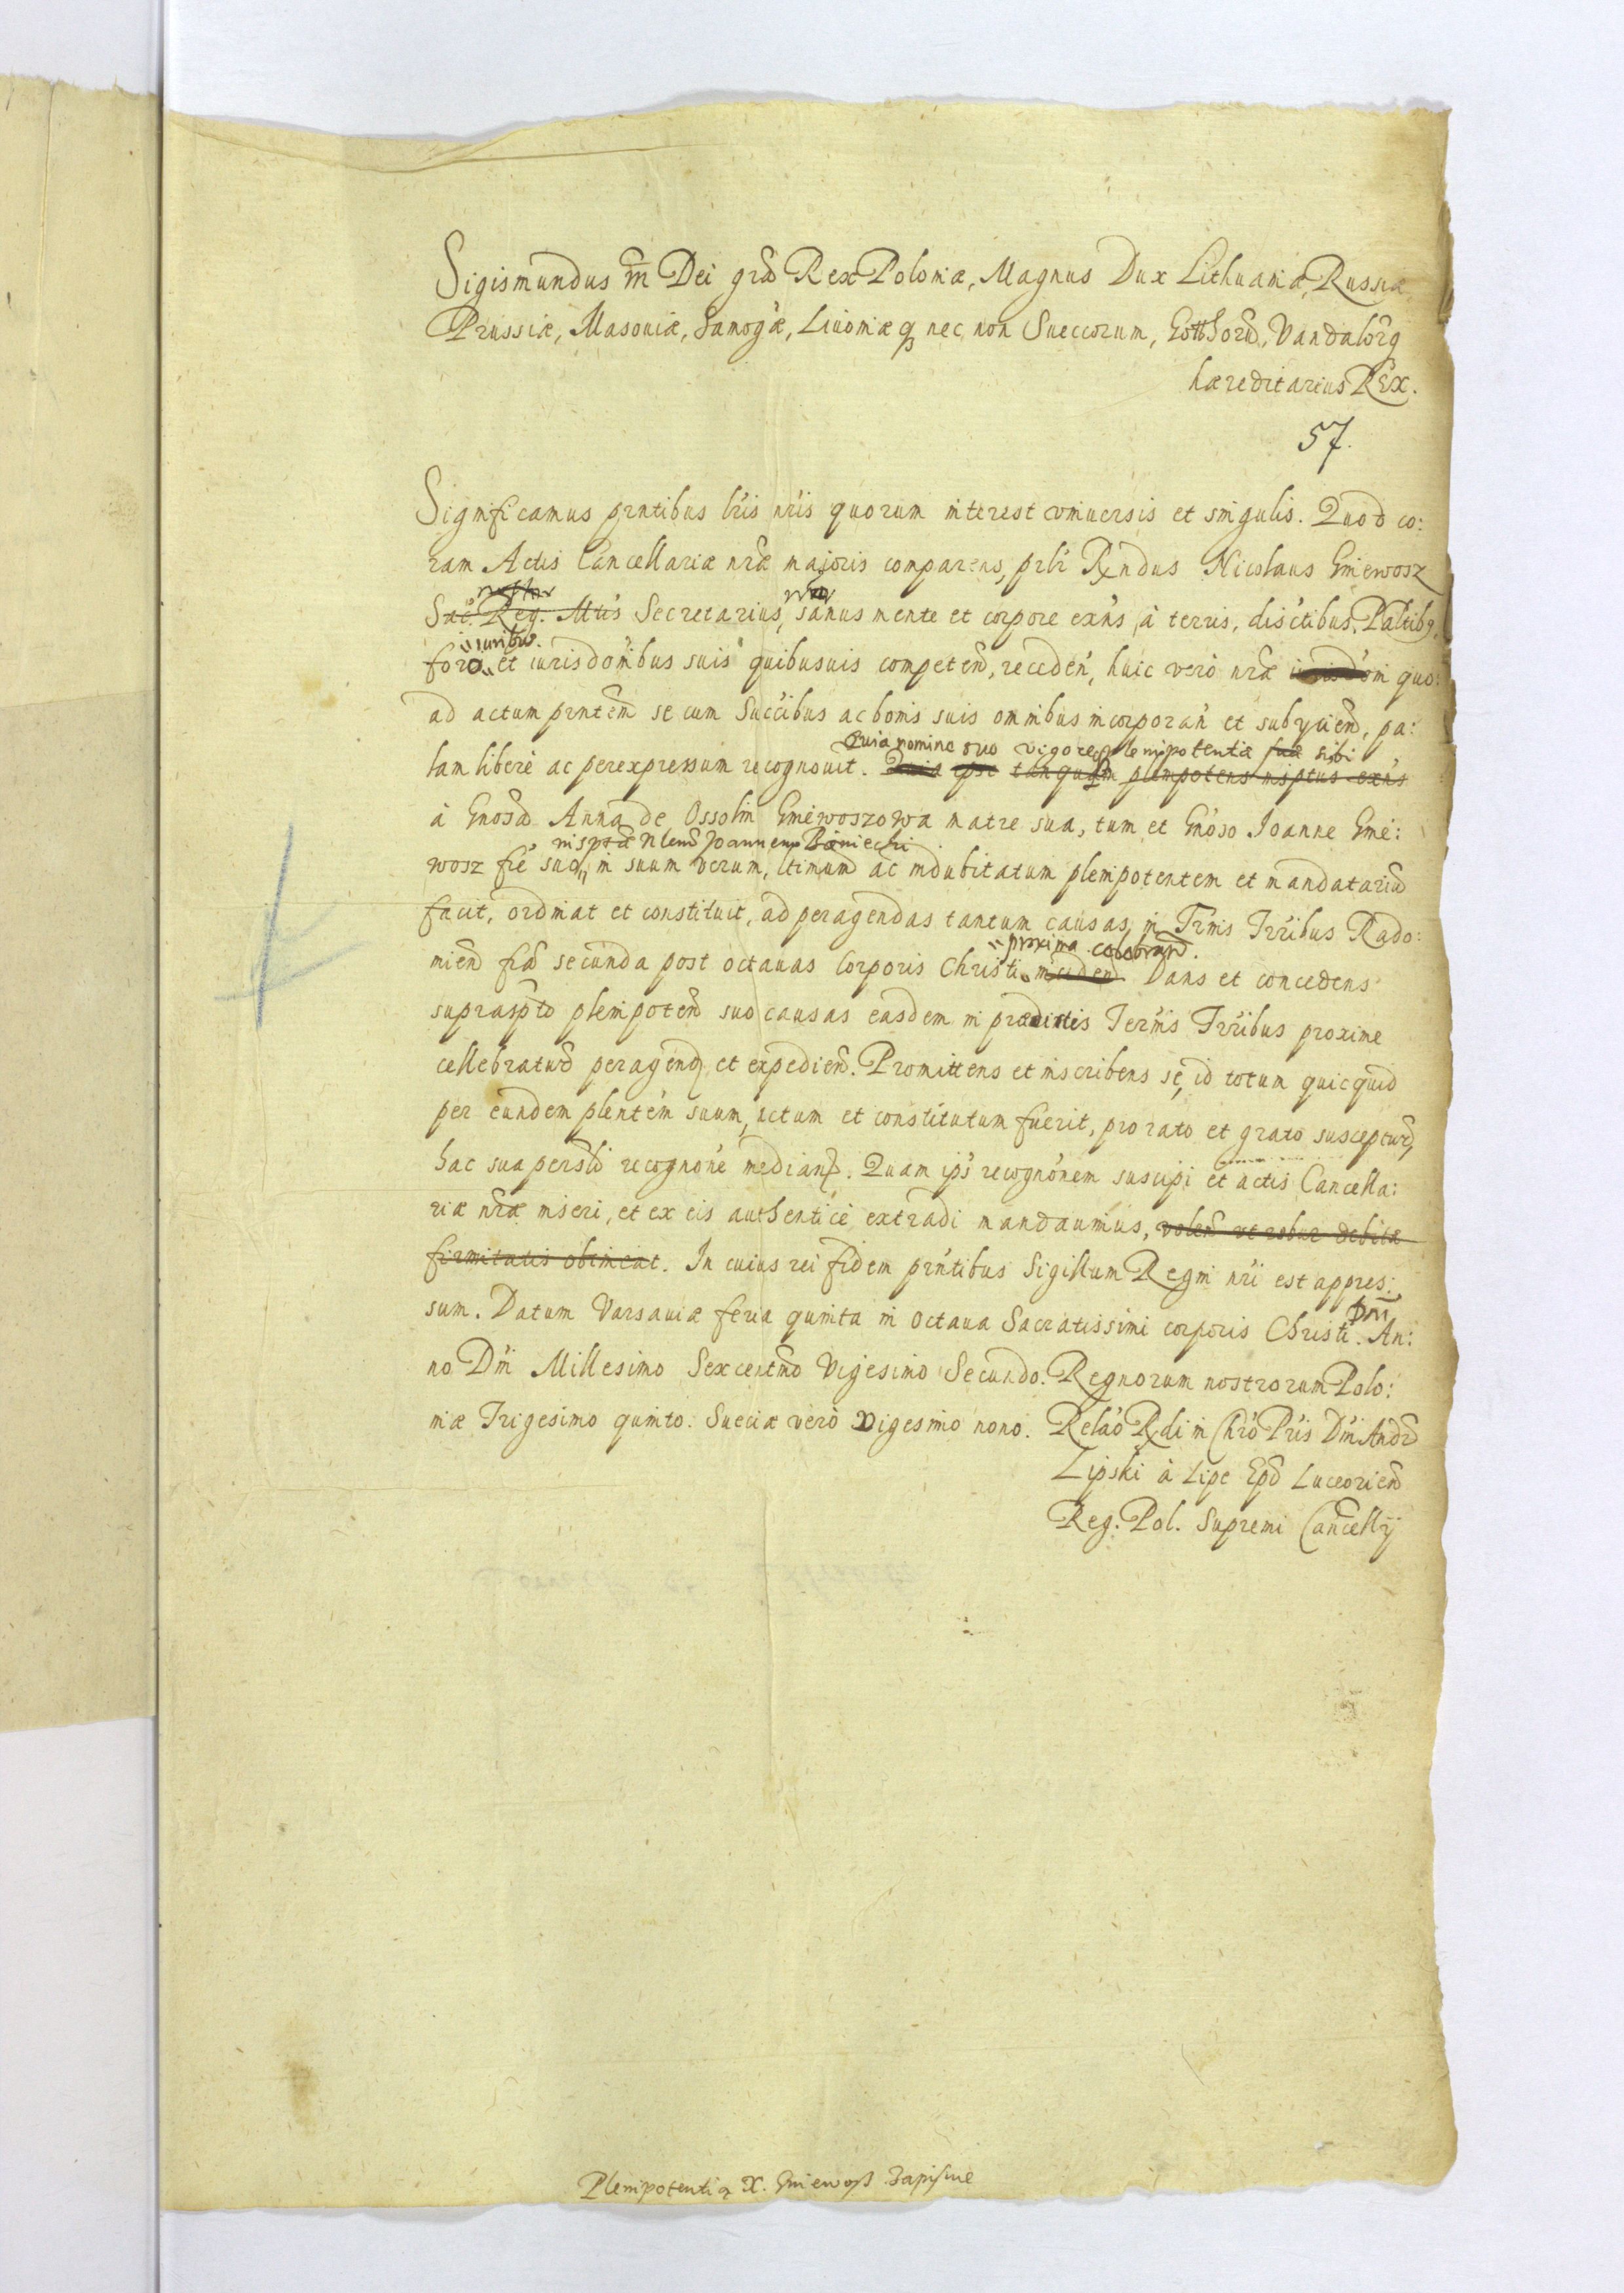 Sigismundus III Dei grã Rex Poloniæ, Magnus Dux Lithuaniæ, Russiæ,
Prussiæ, Masoviæ, Samogæ, Livoniæq nec non Sueccorum, Gotthorũ, Vandalorq
hæreditarius REX.
57.
Significamus prntibus lris nris quorum interest vniuersis et singulis. Quod co:
ram Actis Cancellariæ nræ majoris comparens, prlr Rndus Nicolaus Gniewosz
noster
Sac. Reg. Mtis Secretarius, sanus mente et corpore exns, à terris, disctibus, Paltibq,
iuribus.
foro et iurisdonibus suis quibusuis competeñ, recedeñ, huic verò nræ iurisdoni quo:
ad actum prntem se cum Succibus ac bonis suis omnibus incorporañ et subijcieñ, pa:
Quia nomine suo vigore plenipotentiæ suæ sibi
lam liberè ac per expressum recognouit. Quia ipse tanquam plenipotens insptus exns
à Gnosa Anna de Ossolin Gniewoszowa matre sua, tum et Gnoso Joanne Gnie:
insptæ Nlem Joannem Boniecki
wosz fre suo, in suum verum, ltimum ac indubitatum plenipotentem et mandatariũ
facit, ordinat et constituit, ad peragendas tantum causas, in Trnis Trribus Rado:
proxima celebrand.
mieñ fria secunda post octauas Corporis Christi incideñ Dans et concedens
supraspto plenipoteñ suo causas easdem in prædictis Termis Trribus proxime
cellebraturis peragend et expedieñ. Promittens et inscribens se, id totum quicquid
per eundem plentem suum, actum et constitutum fuerit, pro rato et grato suscepturũ
hac sua persli recognone mediante. Quam ips recognonem suscipi et actis Cancella:
riæ nræ inseri, et ex eis authenticè extradi mandauimus, volen vt robur debitæ
firmitatis obtineat. In cuius rei fidem prntibus Sigillum Regni nri est appres:
sum. Datum Varsaviæ feria quinta in octaua Sacratissimi corporis Christi Dni. An:
no Dni Millesimo Sexcentmo Vigesimo Secundo. Regnorum nostrorum Polo:
niæ Trigesimo quinto. Sueciæ verò vigesimo nono. Relao Rdi in Chro Pris Dni Andr
Lipski à Lipe Epi Luceorieñ
Reg. Pol. Supremi Cancellrij
Plenipotentia X. Gniewosz